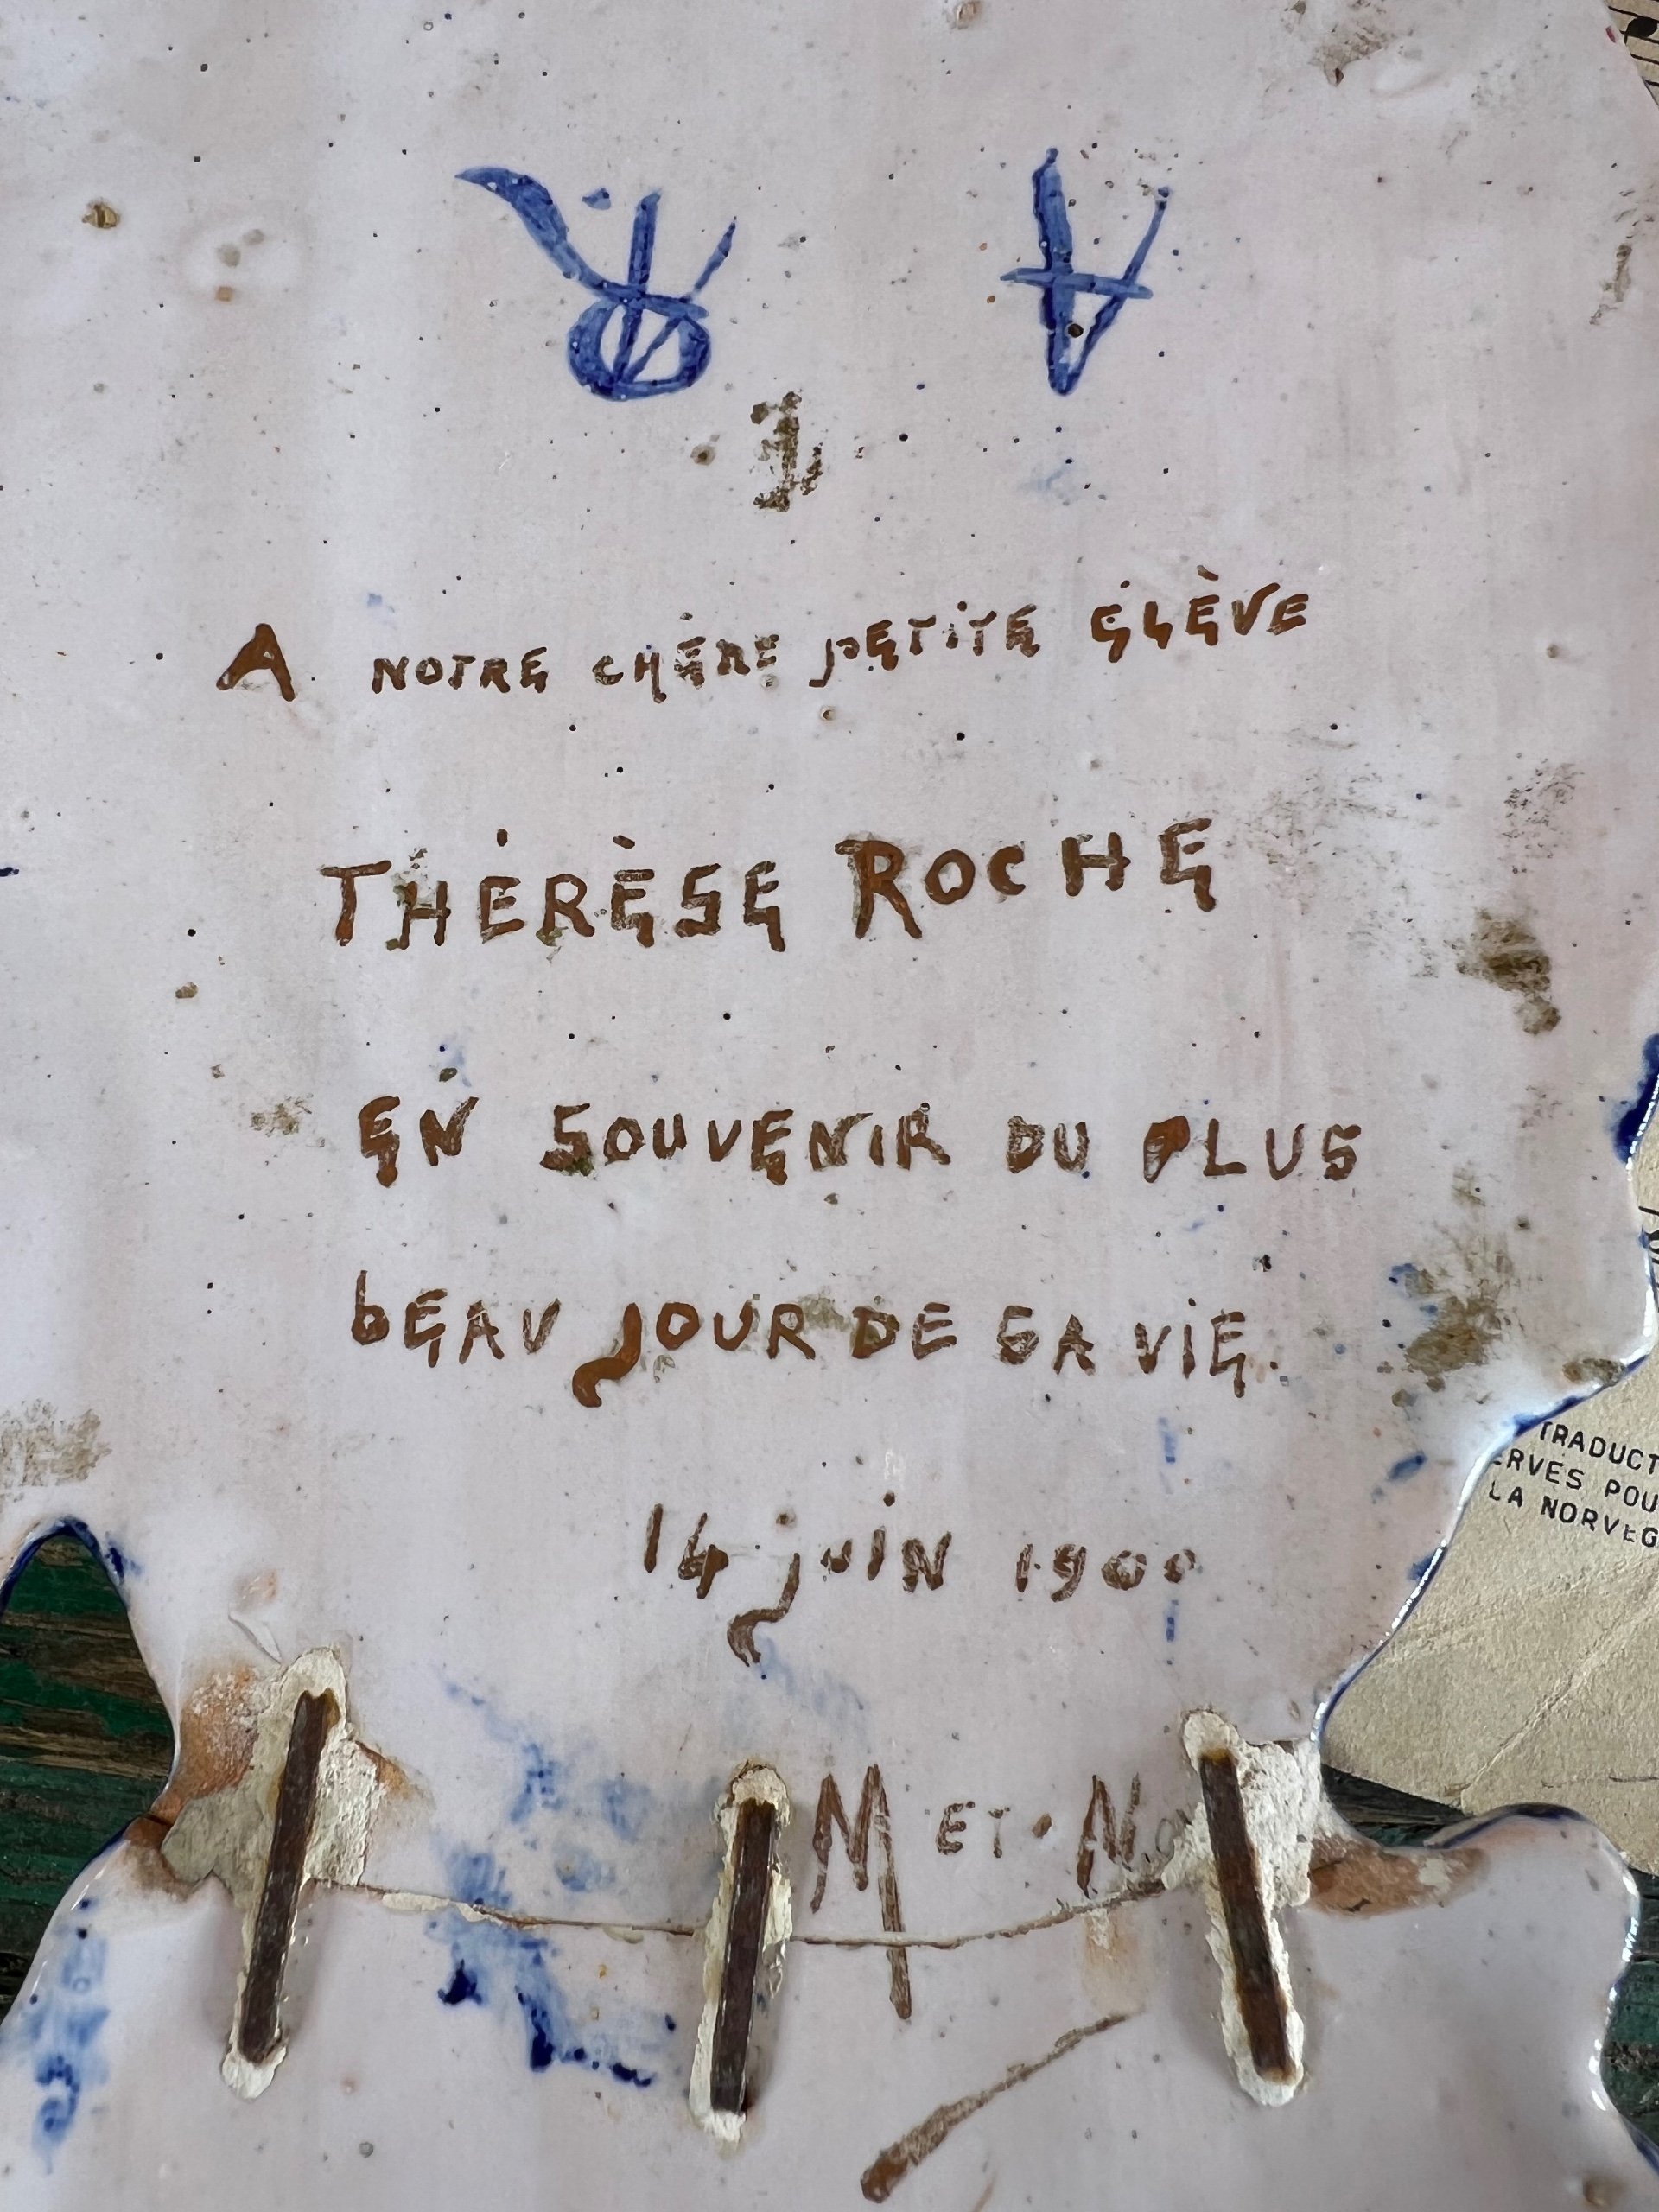 A NOTRE CHÈRE PETITE ÉLÈVE
THÉRÈSE ROCHE
EN SOUVENIR DU PLUS
bEAU JOUR DE SA VIE.
14 juiN 1900
M ET
TRADUCT
ERVES POU
LA NORVEG